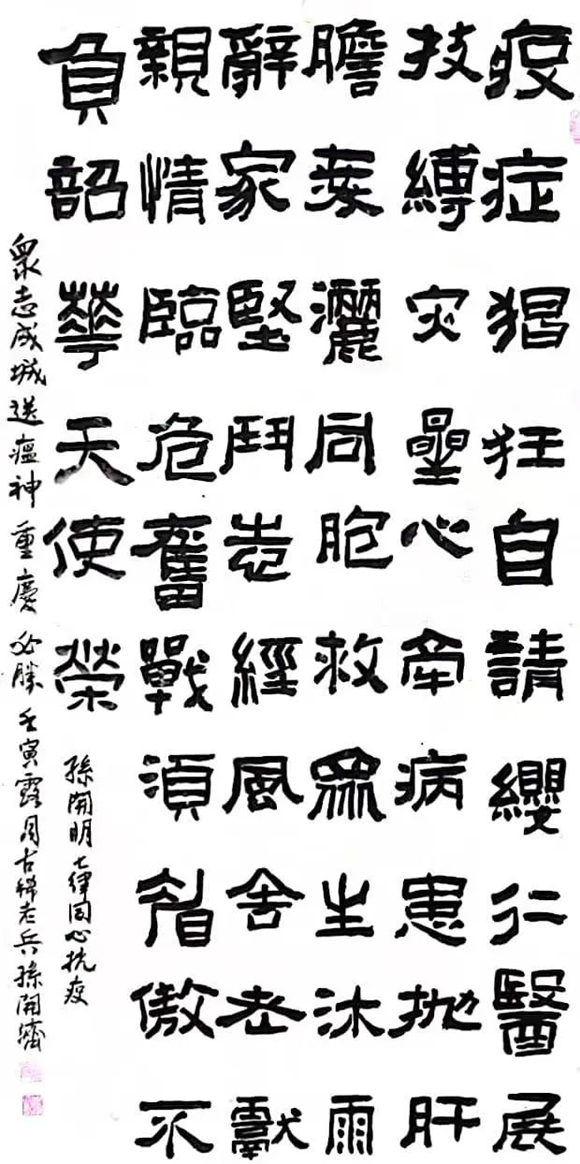 疫症猖狂自請纓仁醫展
技縛灾曐心牽病患拋肝
膽愛灑同胞救眾生沐雨
辭家堅鬥志經風舍老獻
親情臨危奮戰須眉傲不
負韶華天使榮
孫開明七律同心抗疫
眾志成城送瘟神 重慶必勝 壬寅露月古稀老兵孫開濟